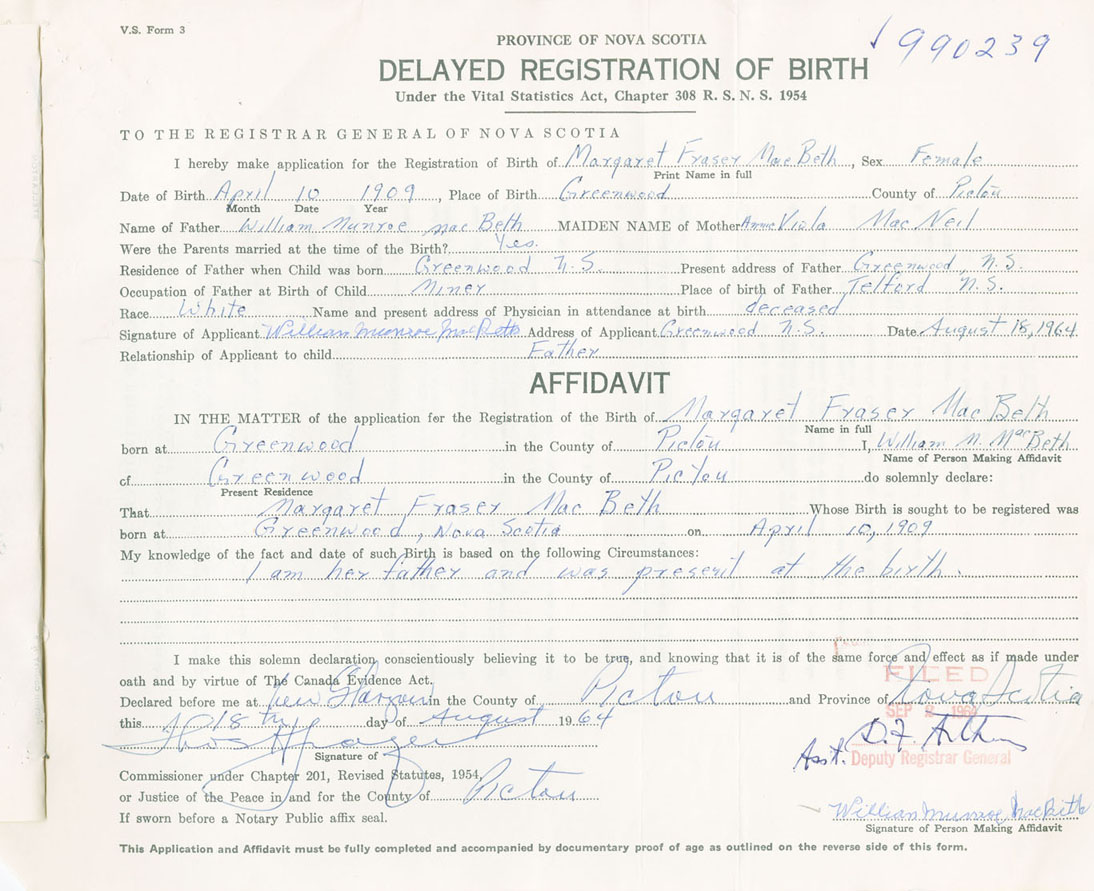 V.S. Form 3
990239
PROVINCE OF NOVA SCOTIA
DELAYED REGISTRATION OF BIRTH
Under the Vital Statistics Act, Chapter 308 R. S. N. S. 1954
TO THE REGISTRAR GENERAL OF NOVA SCOTIA
I hereby make application for the Registration of Birth of Margaret Fraser MacBeth, Sex Female
Print Name in full
Date of Birth April 10 1909, Place of Birth Greenwood County of Pictou
Month Date Year
Name of Father William Munroe MacBeth MAIDEN NAME of Mother Annie Viola MacNeil
Were the Parents married at the time of the Birth? Yes.
Residence of Father when Child was born Greenwood N.S. Present address of Father Greenwood, N.S.
Occupation of Father at Birth of Child Miner Place of birth of Father Telford N.S.
Race White Name and present address of Physician in attendance at birth deceased
Signature of Applicant William Munroe MacBeth Address of Applicant Greenwood N.S. Date August 18, 1964
Relationship of Applicant to child Father
AFFIDAVIT
IN THE MATTER of the application for the Registration of the Birth of Margaret Fraser MacBeth
Name in full
born at Greenwood in the County of Pictou I, William M. MacBeth
Name of Person Making Affidavit
of Greenwood in the County of Pictou do solemnly declare:
Present Residence
That Margaret Fraser MacBeth Whose Birth is sought to be registered was
born at Greenwood, Nova Scotia on April 10, 1909
My knowledge of the fact and date of such Birth is based on the following Circumstances:
I am her father and was present at the birth.
I make this solemn declaration conscientiously believing it to be true, and knowing that it is of the same force and effect as if made under
oath and by virtue of The Canada Evidence Act.
FILED
Declared before me at New Glasgow in the County of Pictou and Province of Nova Scotia
SEP 2 1964
this 18th day of August 1964
Signature of
Asst. Deputy Registrar General
Commissioner under Chapter 201, Revised Statutes, 1954,
or Justice of the Peace in and for the County of Pictou
William Munroe MacBeth
If sworn before a Notary Public affix seal.
Signature of Person Making Affidavit
This Application and Affidavit must be fully completed and accompanied by documentary proof of age as outlined on the reverse side of this form.